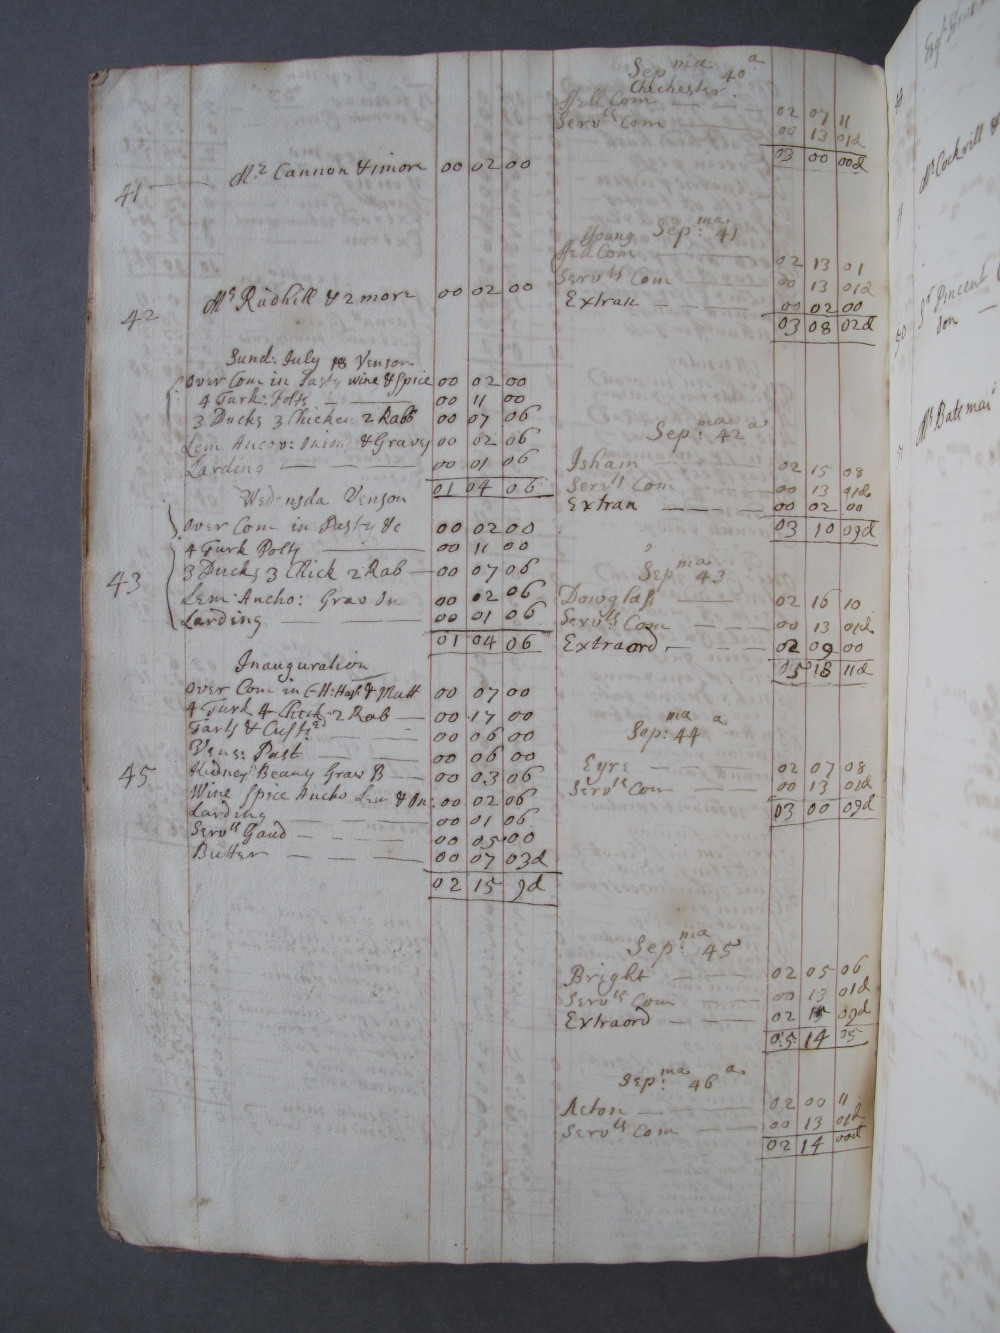 41 Mr. Cannon & i more 00 02 00
42 Mrs Rudhill & 2 more 00 02 00
Sund: July 18 Venson
over Com in Pasty wine & Spice 00 02 00
4 Turk: Polts 00 11 00
3 Ducks 3 Chicken 2 Rabb 00 07 06
Lem Ancov: Onion & Gravey 00 02 06
Larding 00 01 06
01 04 06
Wedensda Venson
43
over Com in Pasty &c 00 02 00
4 Turk Polts 00 11 00
3 Ducks 3 Chick 2 Rab 00 07 06
Lem: Ancho: Grav On 00 02 06
Larding 00 01 06
01 04 06
Inauguration
45
over Com in & Mutt 00 07 00
4 Turk 4 Chick 2 Rab 00 17 00
Tarts & Custd 00 06 00
Vens: Past 00 06 00
Kidney Beans Grav B 00 03 06
Wine Spice Ancho Lem & On: 00 02 06
Larding 00 01 06
Servts Gaud 00 05 00
Butter 00 07 03d
02 15 9d
Sepma 40a
Chichester
ffell Com 02 07 11
Servts Com 00 13 01d
03 00 00d
Sep:ma 41
Young
ffell Com 02 13 01
Servts Com 00 13 01d
Extran 00 02 00
03 08 02d
Sep:ma 42a
Isham 02 15 08
Servts Com 00 13 01d
Extran 00 02 00
03 10 09d
Sepma 43
Dowglass 02 16 10
Servts Com 00 13 01d
Extraord 02 09 00
05 18 11d
Sep:ma 44a
Eyre 02 07 08
Servts Com 00 13 01d
03 00 09d
Sep:ma 45
Bright 02 05 06
Servts Com 00 13 01d
Extraord 02 15 09d
05 14 05
Sep:ma 46a
Acton 02 00 11
Servts Com 00 13 01d
02 14 00d
Mr Cockrill &
Sr Vincent
son
Mr Bateman